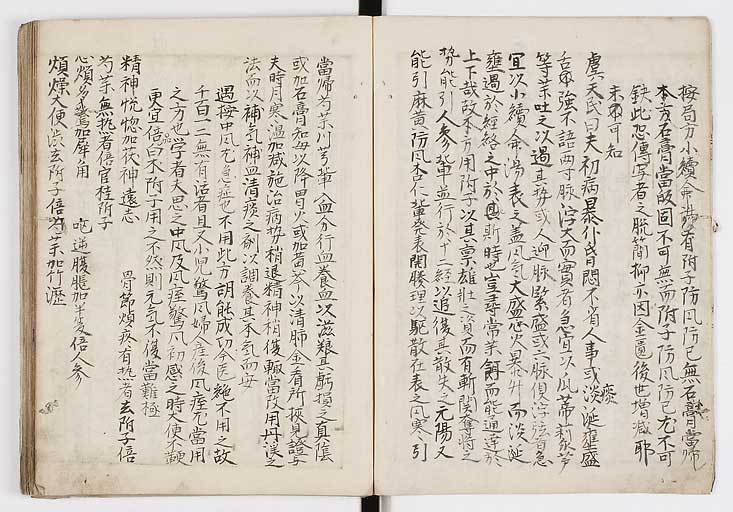 按局方小續命湯有附子防風防已無石膏當帰
本方石膏當歃固不可無而附子防風防已尤不可
鈌此恐傳写者之脱簡抑亦因金匱後世増減耶
未可知
虞天民曰夫初病暴仆昏悶不省人事或淡涎壅盛
舌強不語兩寸脉浮大而實者急宜以瓜蒂藜芦
等薬吐之以遏其勢或人迎脉緊盛或六脉倶浮弦者急
宜以小續命湯表之盖風氣大盛心火暴升而淡涎
壅遏於經絡之中於斯時也豈尋常薬餌而能通達於
上下哉故本方用附子以其禀雄壮之資而有斬関奪將之
勢能引人参軰並行於十二經以追復其散失之元陽又
能引麻黄防風杏仁軰発表開腠理以駆散在表之風寒引
當帰芍薬川芎軰入血分行血養血以滋粮亏損之真陰
或加石膏知母以降胃火或加黄芩以清肺金看所挾見證与
夫時月寒温加减施治病勢稍退精神稍復輙當改用丹溪之
法而以補氣補血清痰之剤以調養其本氣而安
遇按中風尤急症也不用此方胡能成功今医絶不用之故
千百一二無有活者且又小児驚風婦人産後風痙尤當用
之方也学者夫思之中風及風痙驚風初感之時大便不鞕
更宜倍白术附子用之不然則元氣不復當難極
精神恍惚加茯神遠志
骨節煩疼有熱者去附子倍
芍薬無熱者倍官桂附子
心煩多驚加犀角
嘔逆腹脹加半夏倍人参
煩燥大便渋去附子倍芍薬加竹瀝